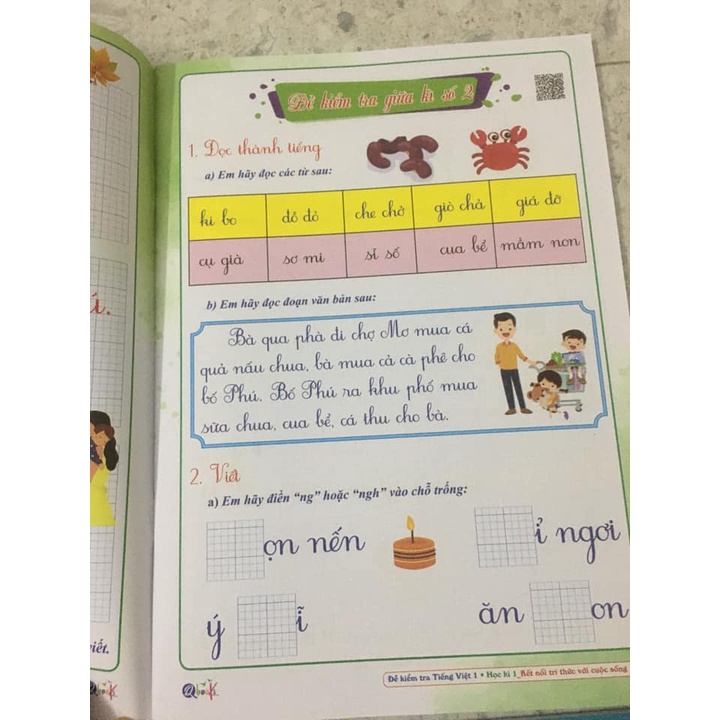 Đề kiểm tra giữa kì số 2
1. Đọc thành tiếng
a) Em hãy đọc các từ sau:
kì bo đồ đỏ che chở giò chả giá đỡ
cụ già sơ mi sĩ số cua bể mầm non
b) Em hãy đọc đoạn văn bản sau:
Bà qua phà đi chợ Mơ mua cá
quả nấu chua, bà mua cả cà phê cho
bố Phú. Bố Phú ra khu phố mua
sữa chua, cua bể, cá thu cho bà.
2. Viết
a) Em hãy điền "ng" hoặc "ngh" vào chỗ trống:
ọn nến ỉ ngơi
ý ĩ ăn on
Đề kiểm tra Tiếng Việt 1 • Học kì 1_Kết nối tri thức với cuộc sống
QbooK
ú.
viết.
booK